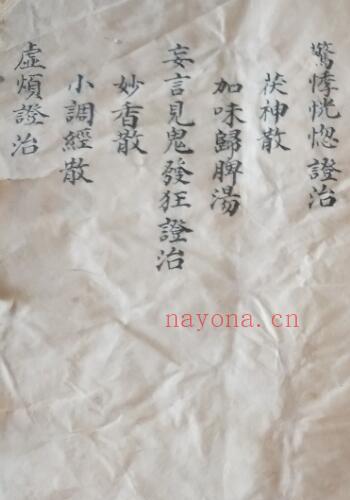 驚悸恍惚證治
茯神散
加味歸脾湯
妄言見鬼發狂證治
妙香散
小調經散
虛煩證治
nayona.cn